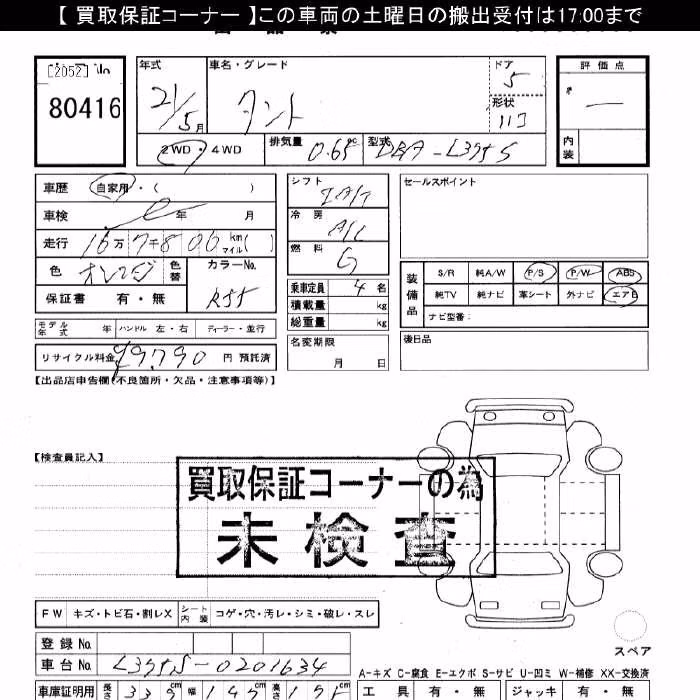 【 買取保証コーナー 】この車両の土曜日の搬出受付は17:00まで
[2052] No
80416
年式 車名・グレード ドア 評価点
21/5月 タント 5
形状 11コ
内装
2WD・4WD 排気量 0.65cc 型式 DBA-L375S
車歴 自家用・( )
車検 年 月
走行 16万7千806km マイル( )
色 オレンジ 色替 カラーNo.
R55
保証書 有・無
シフト IAT
冷房 A/C
燃料 G
乗車定員 4名
積載量 kg
総重量 kg
セールスポイント
装備品 S/R 純A/W P/S P/W ABS
純TV 純ナビ 革シート 外ナビ エアB
ナビ型番:
モデル年式 年 ハンドル 左・右 ディーラー・並行
名変期限
月 日
後日品
リサイクル料金 ¥9,790 円 預託済
【出品店申告欄(不良箇所・欠品・注意事項等)】
【検査員記入】
買取保証コーナーの為
未検査
FW キズ・トビ石・割レX シート内装 コゲ・穴・汚レ・シミ・破レ・スレ
登録 No.
車台 No. L375S-0201634
スペア
A-キズ C-腐食 E-エクボ S-サビ U-凹ミ W-補修 XX-交換済
車庫証明用 長さ 339cm 幅 147cm 高さ 175cm
工具 有・無 ジャッキ 有・無